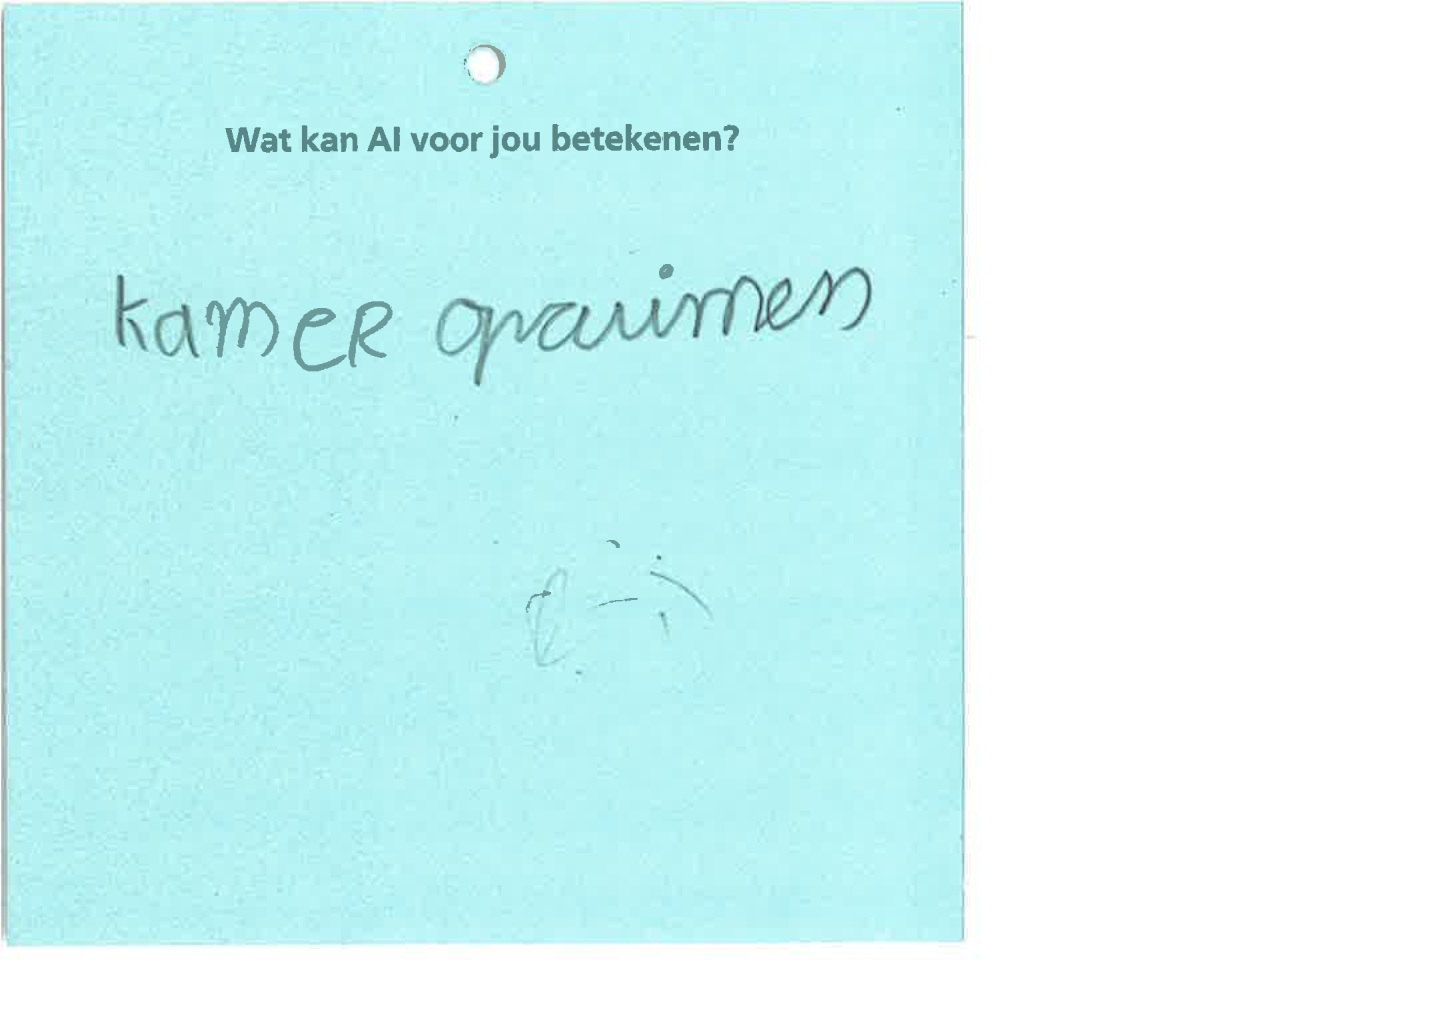 Wat kan AI voor jou betekenen?
kamer oprauimen